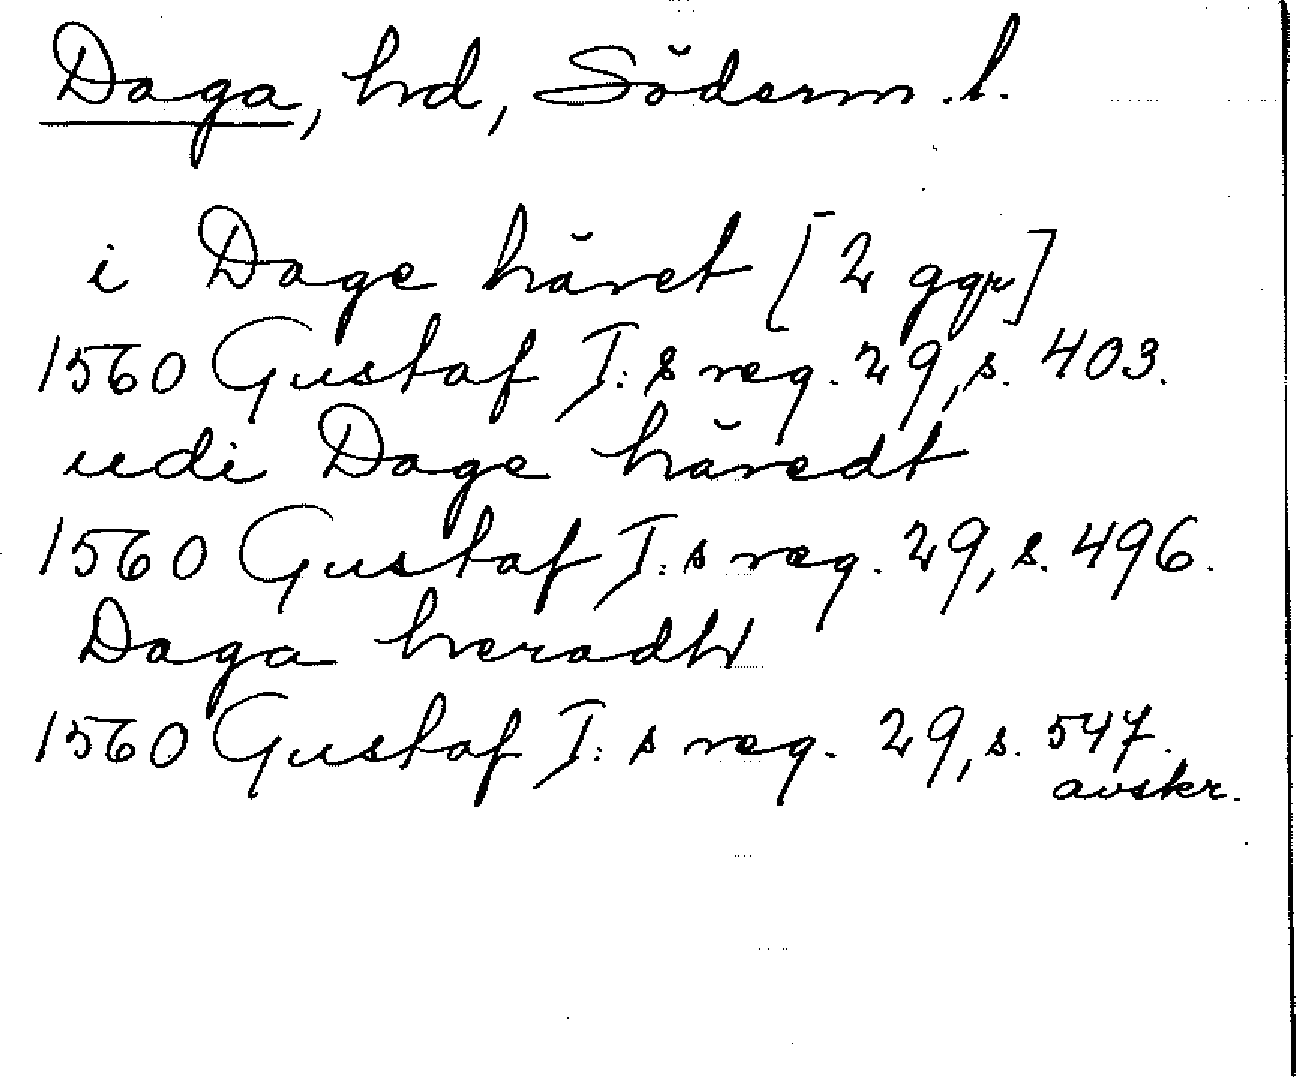 Daga, hd, Söderm. l.
i Dage häret [2 ggr]
1560 Gustaf I:s reg. 29, s. 403.
udi Dage häredt
1560 Gustaf I:s reg. 29, s. 496.
Daga heradt
1560 Gustaf I:s reg. 29, s. 547.
avskr.